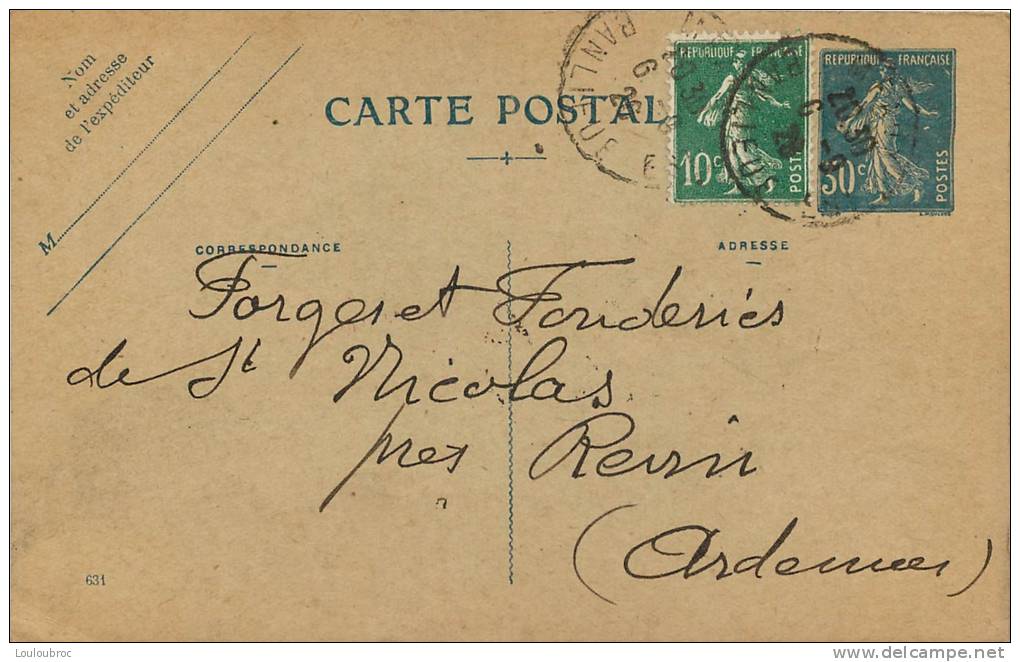 Nom
et adresse
de l'expéditeur
M
CARTE POSTALE
REPUBLIQUE FRANÇAISE
10c
POSTES
REPUBLIQUE FRANÇAISE
30c
POSTES
CORRESPONDANCE
ADRESSE
Forges et Fonderies
de St Nicolas
près Revin
(Ardennes)
631
Louloubroc
www.delcampe.net